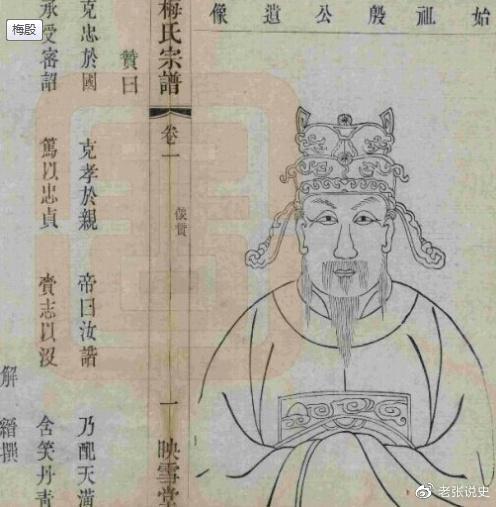 始祖殷公遺像
梅氏宗譜 卷一 一 映雪堂
贊曰
克忠於國 克孝於親 帝曰汝諧 乃配天潢
承受密詔 篤以忠貞 賫志以沒 含笑丹青
解縉撰
梅殷
@老张说史